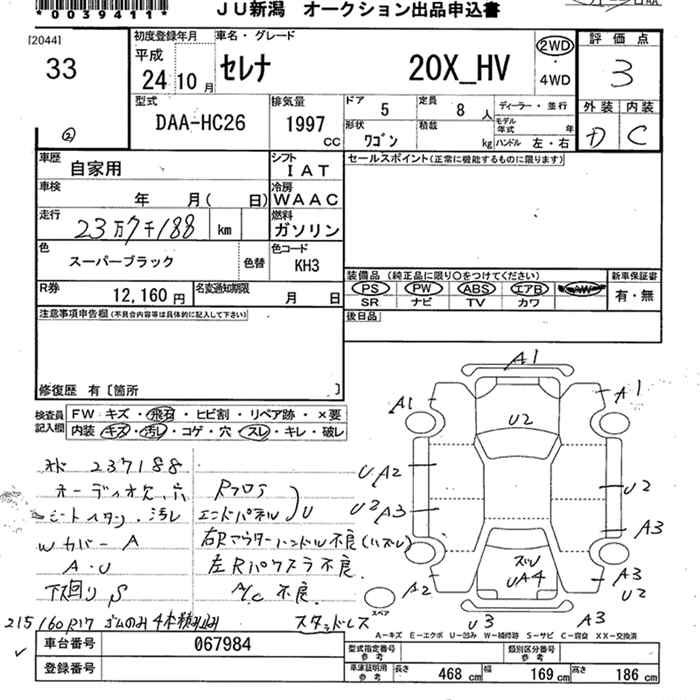 *0039411*
JU新潟 オークション出品申込書
[2044]
33
②
初度登録年月
平成
24 10 月
車名・グレード
セレナ 20X_HV
2WD
・
4WD
評価点
3
外装 内装
D C
型式
DAA-HC26
排気量
1997
CC
ドア
5
定員
8 人
形状
ワゴン
積載
kg
ディーラー・並行
モデル年式 年
ハンドル 左・右
車歴
自家用
シフト
IAT
車検
年 月( 日)
冷房
WAAC
走行
23万7千188 km
燃料
ガソリン
色
スーパーブラック
色替
色コード
KH3
R券
12,160 円
名変通知期限
月 日
セールスポイント(正常に機能するものに限ります)
装備品 (純正品に限り○をつけてください)
PS PW ABS エアB AW
SR ナビ TV カワ
新車保証書
有・無
後日品
注意事項申告欄(不具合内容等は具体的に記入して下さい)
修復歴 有〔箇所 〕
検査員
記入欄
FW キズ・飛石・ヒビ割・リペア跡・×要
内装 キズ・汚レ・コゲ・穴・スレ・キレ・破レ
237188
オーディオ欠、穴
シートイタミ、汚レ
Wカバー A
A・U
下回り S
Rフロア
エンドパネル
U
右Rアウターハンドル不良(ハズレ)
左Rパワスラ不良
A/C 不良
215/60R17 ゴムのみ4本積込み
スタッドレス
A1
A1
A1
U2
UA2
U2A3
U2
A3
ズレ
UA4
A2
A3
U2
U3
A3
スペア
A−キズ E−エクボ U−凹み W−補修跡 S−サビ C−腐食 XX−交換済
車台番号
067984
登録番号
型式指定番号
参考
類別区分番号
参考
車庫証明用
参考
長さ 468 cm
幅 169 cm
高さ 186 cm